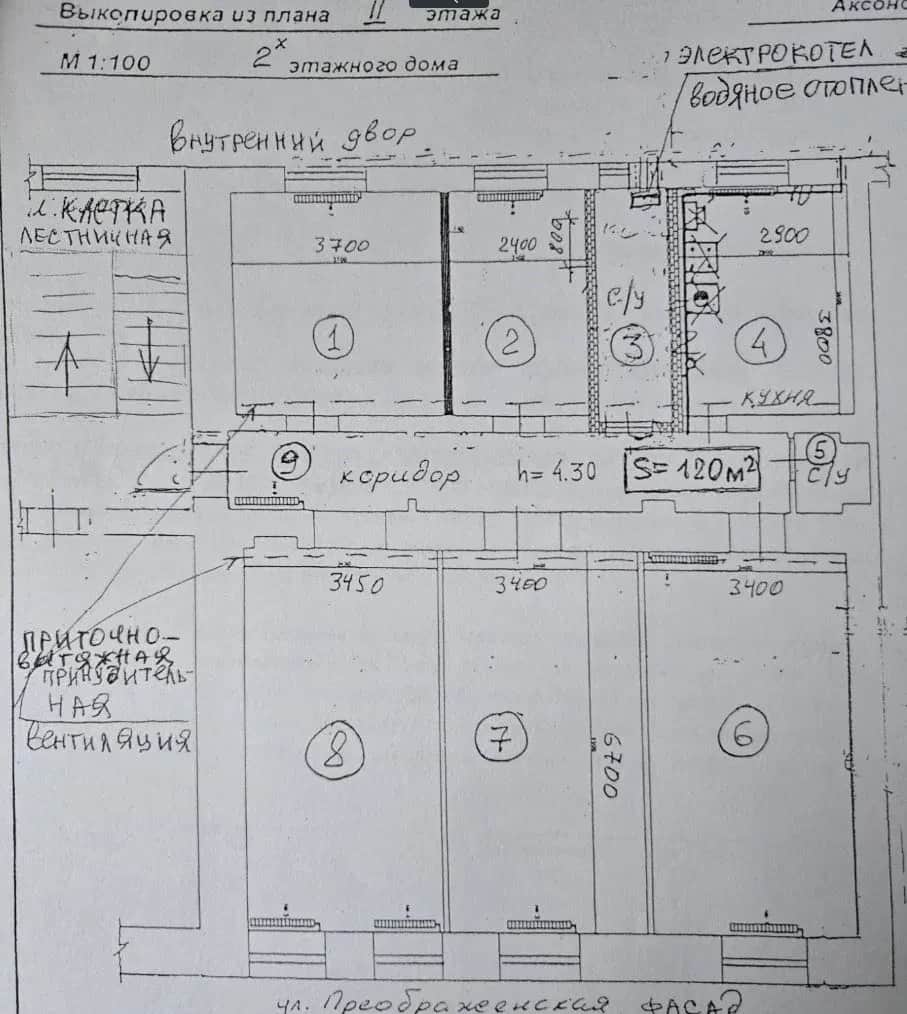 Выкопировка из плана II этажа
М 1:100 2х этажного дома
ЭЛЕКТРОКОТЕЛ
ВНУТРЕННИЙ ДВОР
ЛЕСТНИЧНАЯ
3700
2400
800
2900
С/У
1
2
3
4
3800
КУХНЯ
9
коридор
h= 4.30
S= 120м²
5
С/У
3450
3400
3400
ПРИТОЧНО-
ВЫТЯЖНАЯ
ПРИНУДИТЕЛЬ-
НАЯ
ВЕНТИЛЯЦИЯ
8
7
6700
6
ул. Преображенская ФАСАД